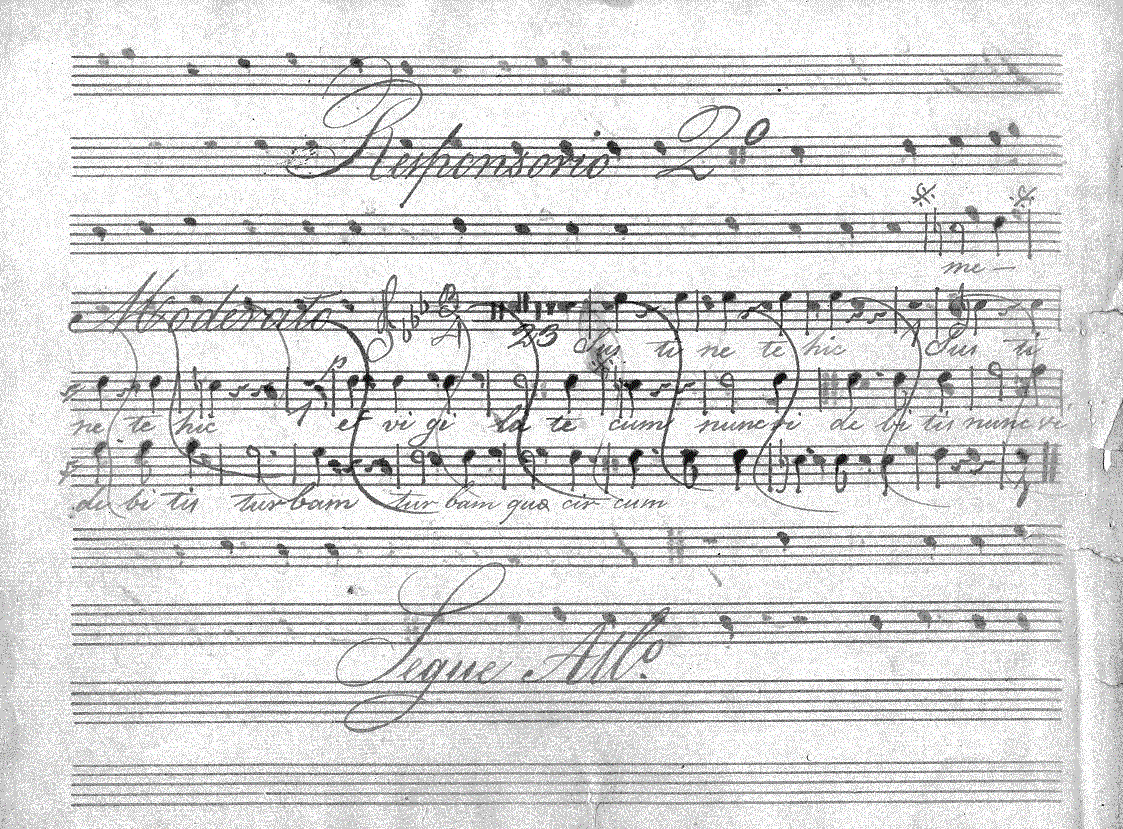 Responsorio 2º
me-
Moderato 23 Sus ti ne te hic Sus ti
ne te hic et vi gi la te cum nunc vi de bi tis nunc vi
de bi tis turbam tur bam quæ cir cum
Segue Allº